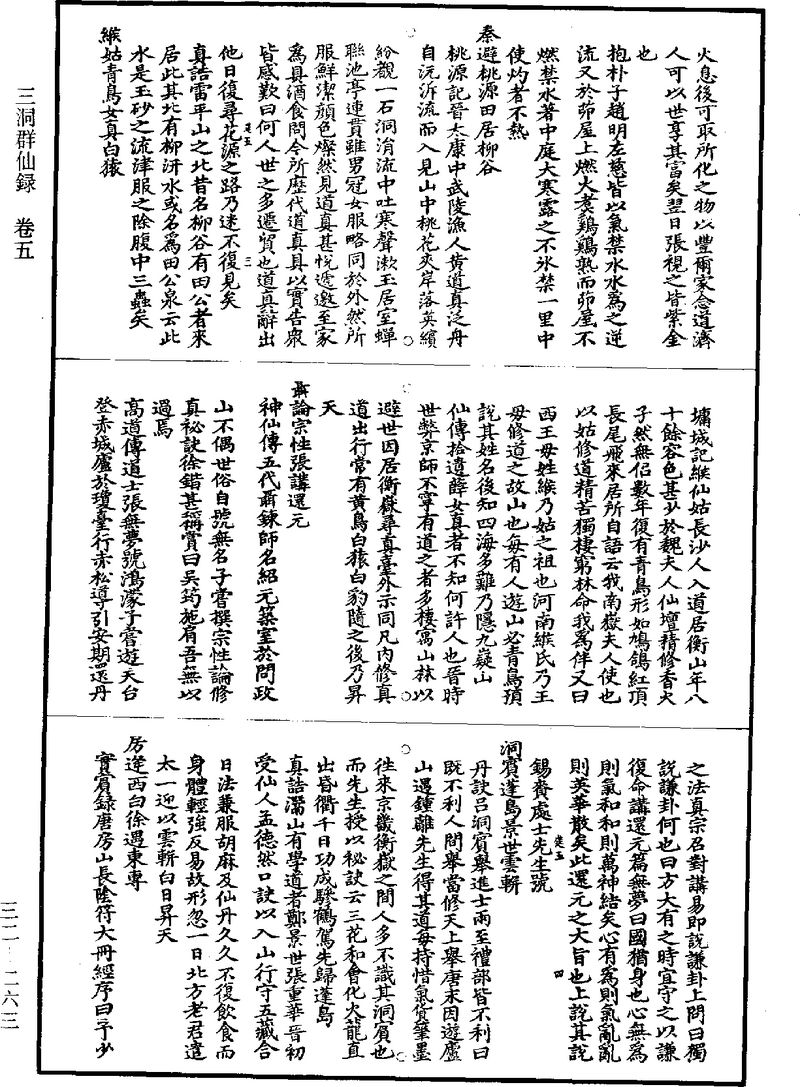 三洞群仙録　卷五
火息後可取所化之物以豐爾家念道濟
人可以世享其富矣翌日張視之皆紫金
也
抱朴子趙明左慈皆以氣禁水水爲之逆
流又於茆屋上燃火煑鷄鷄熟而茆屋不
燃禁水著中庭大寒露之不氷禁一里中
使灼者不熱
秦避桃源田居柳谷
桃源記晉太康中武陵漁人黄道真泛舟
自沅泝流而入見山中桃花夾岸落英繽
紛觀一石洞涓流中吐寒聲漱玉居室蟬
聯池亭連貫雖男冠女服略同於外然所
服鮮潔顔色燦然見道真甚悦遞邀至家
爲具酒食問今所歷代道真具以實告衆
皆感歎曰何人世之多遷貿也道真辭出
他日復尋花源之路乃迷不復見矣
真誥雷平山之北昔名柳谷有田公者來
居此其北有柳汧水或名爲田公泉云此
水是玉砂之流津服之除腹中三蟲矣
緱姑青鳥女真白猿
墉城記緱仙姑長沙人入道居衡山年八
十餘容色甚少於魏夫人仙壇精修香火
孑然無侣數年復有青鳥形如鳩鴿紅頂
長尾飛來居所自語云我南嶽夫人使也
以姑修道精苦獨棲窮林命我爲伴又曰
西王母姓緱乃姑之祖也河南緱氏乃王
母修道之故山也每有人遊山必青鳥預
說其姓名後知四海多難乃隱九嶷山
仙傳拾遺薛女真者不知何許人也晉時
世弊京師不寧有道之者多棲寓山林以
避世因居衡嶽尋真臺外示同凡内修真
道出行常有黄鳥白猿白豹隨之後乃昇
天
聶論宗性張講還元
神仙傳五代聶鍊師名紹元築室於問政
山不偶世俗自號無名子嘗撰宗性論修
真祕訣徐鍇甚稱賞曰吴筠施肩吾無以
過焉
髙道傳道士張無夢號鴻濛子嘗遊天台
登赤城廬於瓊臺行赤松導引安期還丹
之法真宗召對講易即説謙卦上問曰獨
説謙卦何也曰方大有之時宜守之以謙
復命講還元篇無夢曰國猶身也心無爲
則氣和和則萬神結矣心有爲則氣亂亂
則英華散矣此還元之大旨也上說其說
錫賚處士先生號
洞賓蓬島景世雲軿
丹訣吕洞賓舉進士兩至禮部皆不利曰
既不利人間舉當修天上舉唐末因遊廬
山遇鍾離先生得其道每持惜氣貨筆墨
徃來京畿衡嶽之間人多不識其洞賓也
而先生授以秘訣云三花和會化火龍直
出昏衢千日功成驂鶴駕先歸蓬島
真誥灊山有學道者鄭景世張重華晉初
受仙人孟德然口訣以入山行守五藏合
日法兼服胡麻及仙丹久久不復飲食而
身體輕強反易故形忽一日北方老君遣
太一迎以雲軿白日昇天
房逢西白徐遇東專
賓賓録唐房山長陰符大冊經序曰予少
三二—二六三